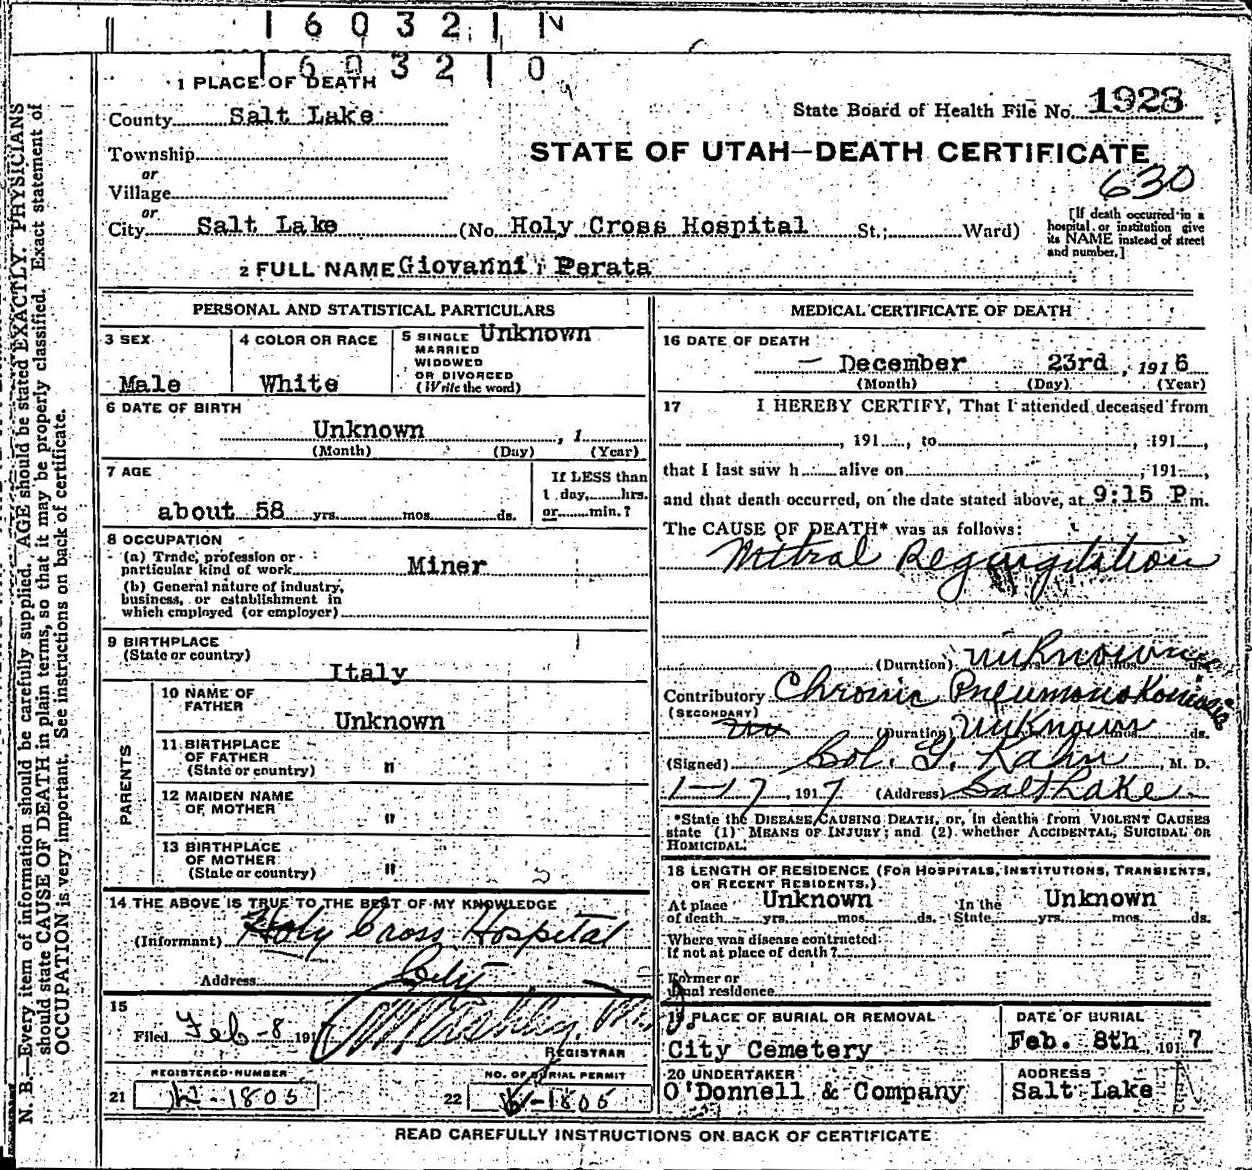 1 6 0 3 2 1 N
1 6 0 3 2 1 0
1 PLACE OF DEATH
County Salt Lake
State Board of Health File No. 1928
Township
STATE OF UTAH—DEATH CERTIFICATE
or
630
Village
or
City Salt Lake (No. Holy Cross Hospital St.; Ward)
[If death occurred in a
hospital or institution give
its NAME instead of street
and number.]
2 FULL NAME Giovanni Perata
PERSONAL AND STATISTICAL PARTICULARS
3 SEX
Male
4 COLOR OR RACE
White
5 SINGLE Unknown
MARRIED
WIDOWED
OR DIVORCED
(Write the word)
6 DATE OF BIRTH
Unknown , 1
(Month) (Day) (Year)
7 AGE
about 58 yrs. mos. ds.
If LESS than
1 day, hrs.
or min.?
8 OCCUPATION
(a) Trade, profession or
particular kind of work Miner
(b) General nature of industry,
business, or establishment in
which employed (or employer)
9 BIRTHPLACE
(State or country)
Italy
PARENTS
10 NAME OF
FATHER
Unknown
11 BIRTHPLACE
OF FATHER
(State or country) "
12 MAIDEN NAME
OF MOTHER "
13 BIRTHPLACE
OF MOTHER
(State or country) "
14 THE ABOVE IS TRUE TO THE BEST OF MY KNOWLEDGE
(Informant) Holy Cross Hospital
Address City
15
Filed Feb-8 191
REGISTRAR
REGISTERED NUMBER
21
NO. OF BURIAL PERMIT
22
MEDICAL CERTIFICATE OF DEATH
16 DATE OF DEATH
December 23rd , 1916
(Month) (Day) (Year)
17 I HEREBY CERTIFY, That I attended deceased from
, 191 , to , 191 ,
that I last saw h alive on , 191 ,
and that death occurred, on the date stated above, at 9:15 P m.
The CAUSE OF DEATH* was as follows:
Mitral Regurgitation
(Duration) unknown
Contributory Chronic Pneumonokoniosis
(SECONDARY)
(Duration) unKnown ds.
(Signed) Sol. G. Kahn, M. D.
1-17, 1917 (Address) Salt Lake
*State the DISEASE CAUSING DEATH, or, in deaths from VIOLENT CAUSES
state (1) MEANS OF INJURY; and (2) whether ACCIDENTAL, SUICIDAL OR
HOMICIDAL.
18 LENGTH OF RESIDENCE (FOR HOSPITALS, INSTITUTIONS, TRANSIENTS,
OR RECENT RESIDENTS.)
At place Unknown In the Unknown
of death yrs. mos. ds. State yrs. mos. ds.
Where was disease contracted
if not at place of death?
Former or
usual residence
19 PLACE OF BURIAL OR REMOVAL
City Cemetery
DATE OF BURIAL
Feb. 8th 1917
20 UNDERTAKER
O'Donnell & Company
ADDRESS
Salt Lake
READ CAREFULLY INSTRUCTIONS ON BACK OF CERTIFICATE
N. B.—Every item of information should be carefully supplied. AGE should be stated EXACTLY. PHYSICIANS
should state CAUSE OF DEATH in plain terms, so that it may be properly classified. Exact statement of
OCCUPATION is very important. See instructions on back of certificate.